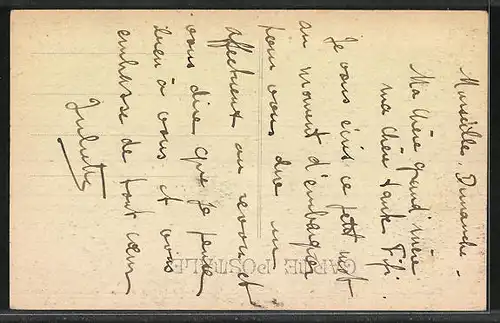 Marseille, Dimanche -
Ma chère grand'mère
ma chère tante Fifi.
Je vous écris ce petit mot
au moment d'embarquer
pour vous dire un
affectueux au revoir et
vous dire que je pense
bien à vous et vous
embrasse de tout cœur
CARTE POSTALE